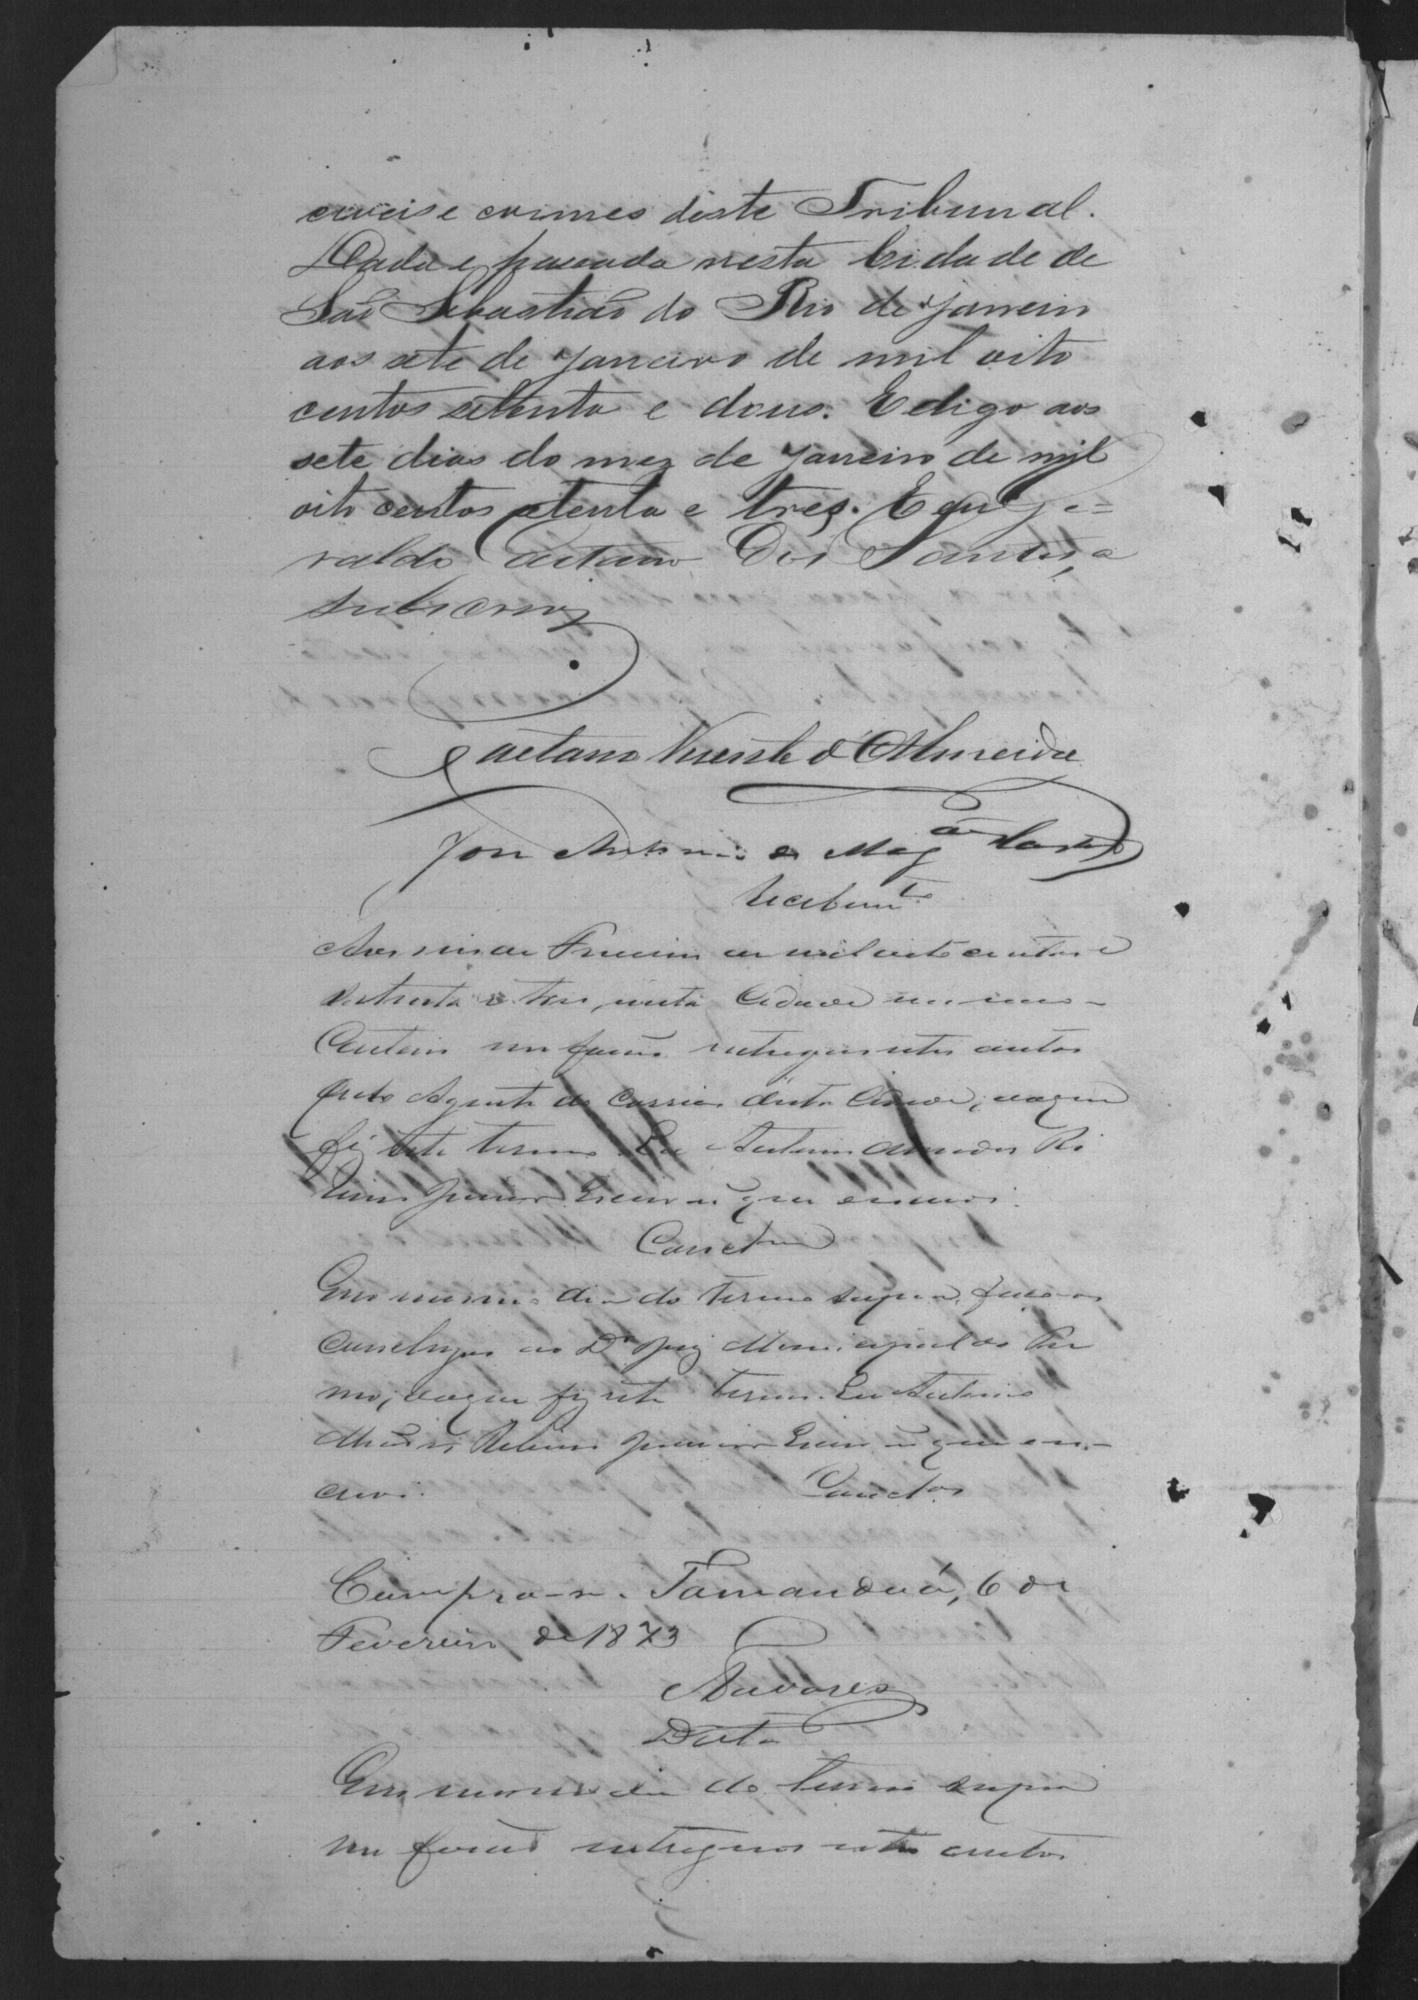 civeis e crimes deste Tribunal.
Dada e passada nesta Cidade de
São Sebastião do Rio de Janeiro
aos sete de Janeiro de mil oito
centos setenta e dous. E digo aos
sete dias do mez de Janeiro de mil
oito centos setenta e tres. E eu Ge=
raldo Caetano Dos Santos, a
subscrevy
Caetano Vicente d'Almeida
José Antonio de Mag.es
Recebim.to
Aos seis de Fevereiro de mil oito centos e
setenta e tres, nesta Cidade em meo
Cartorio me forão entregues estes autos
pelo Agente do Correio desta Cidade, do que
fiz este termo. Eu Antonio
Ribeiro Junior Escrivão que escrevi.
Concl.am
Em o mesmo dia do termo supra, faço os
conclusos ao D.r Juiz Municipal do Ter
mo, do que fiz este termo. Eu Antonio
Ribeiro Junior Escrivão que es-
crevi. Concl.os
Cumpra-se. Tamanduá, 6 de
Fevereiro de 1873
Tavares
Data
Em o mesmo dia do termo supra
me forão entregues estes autos